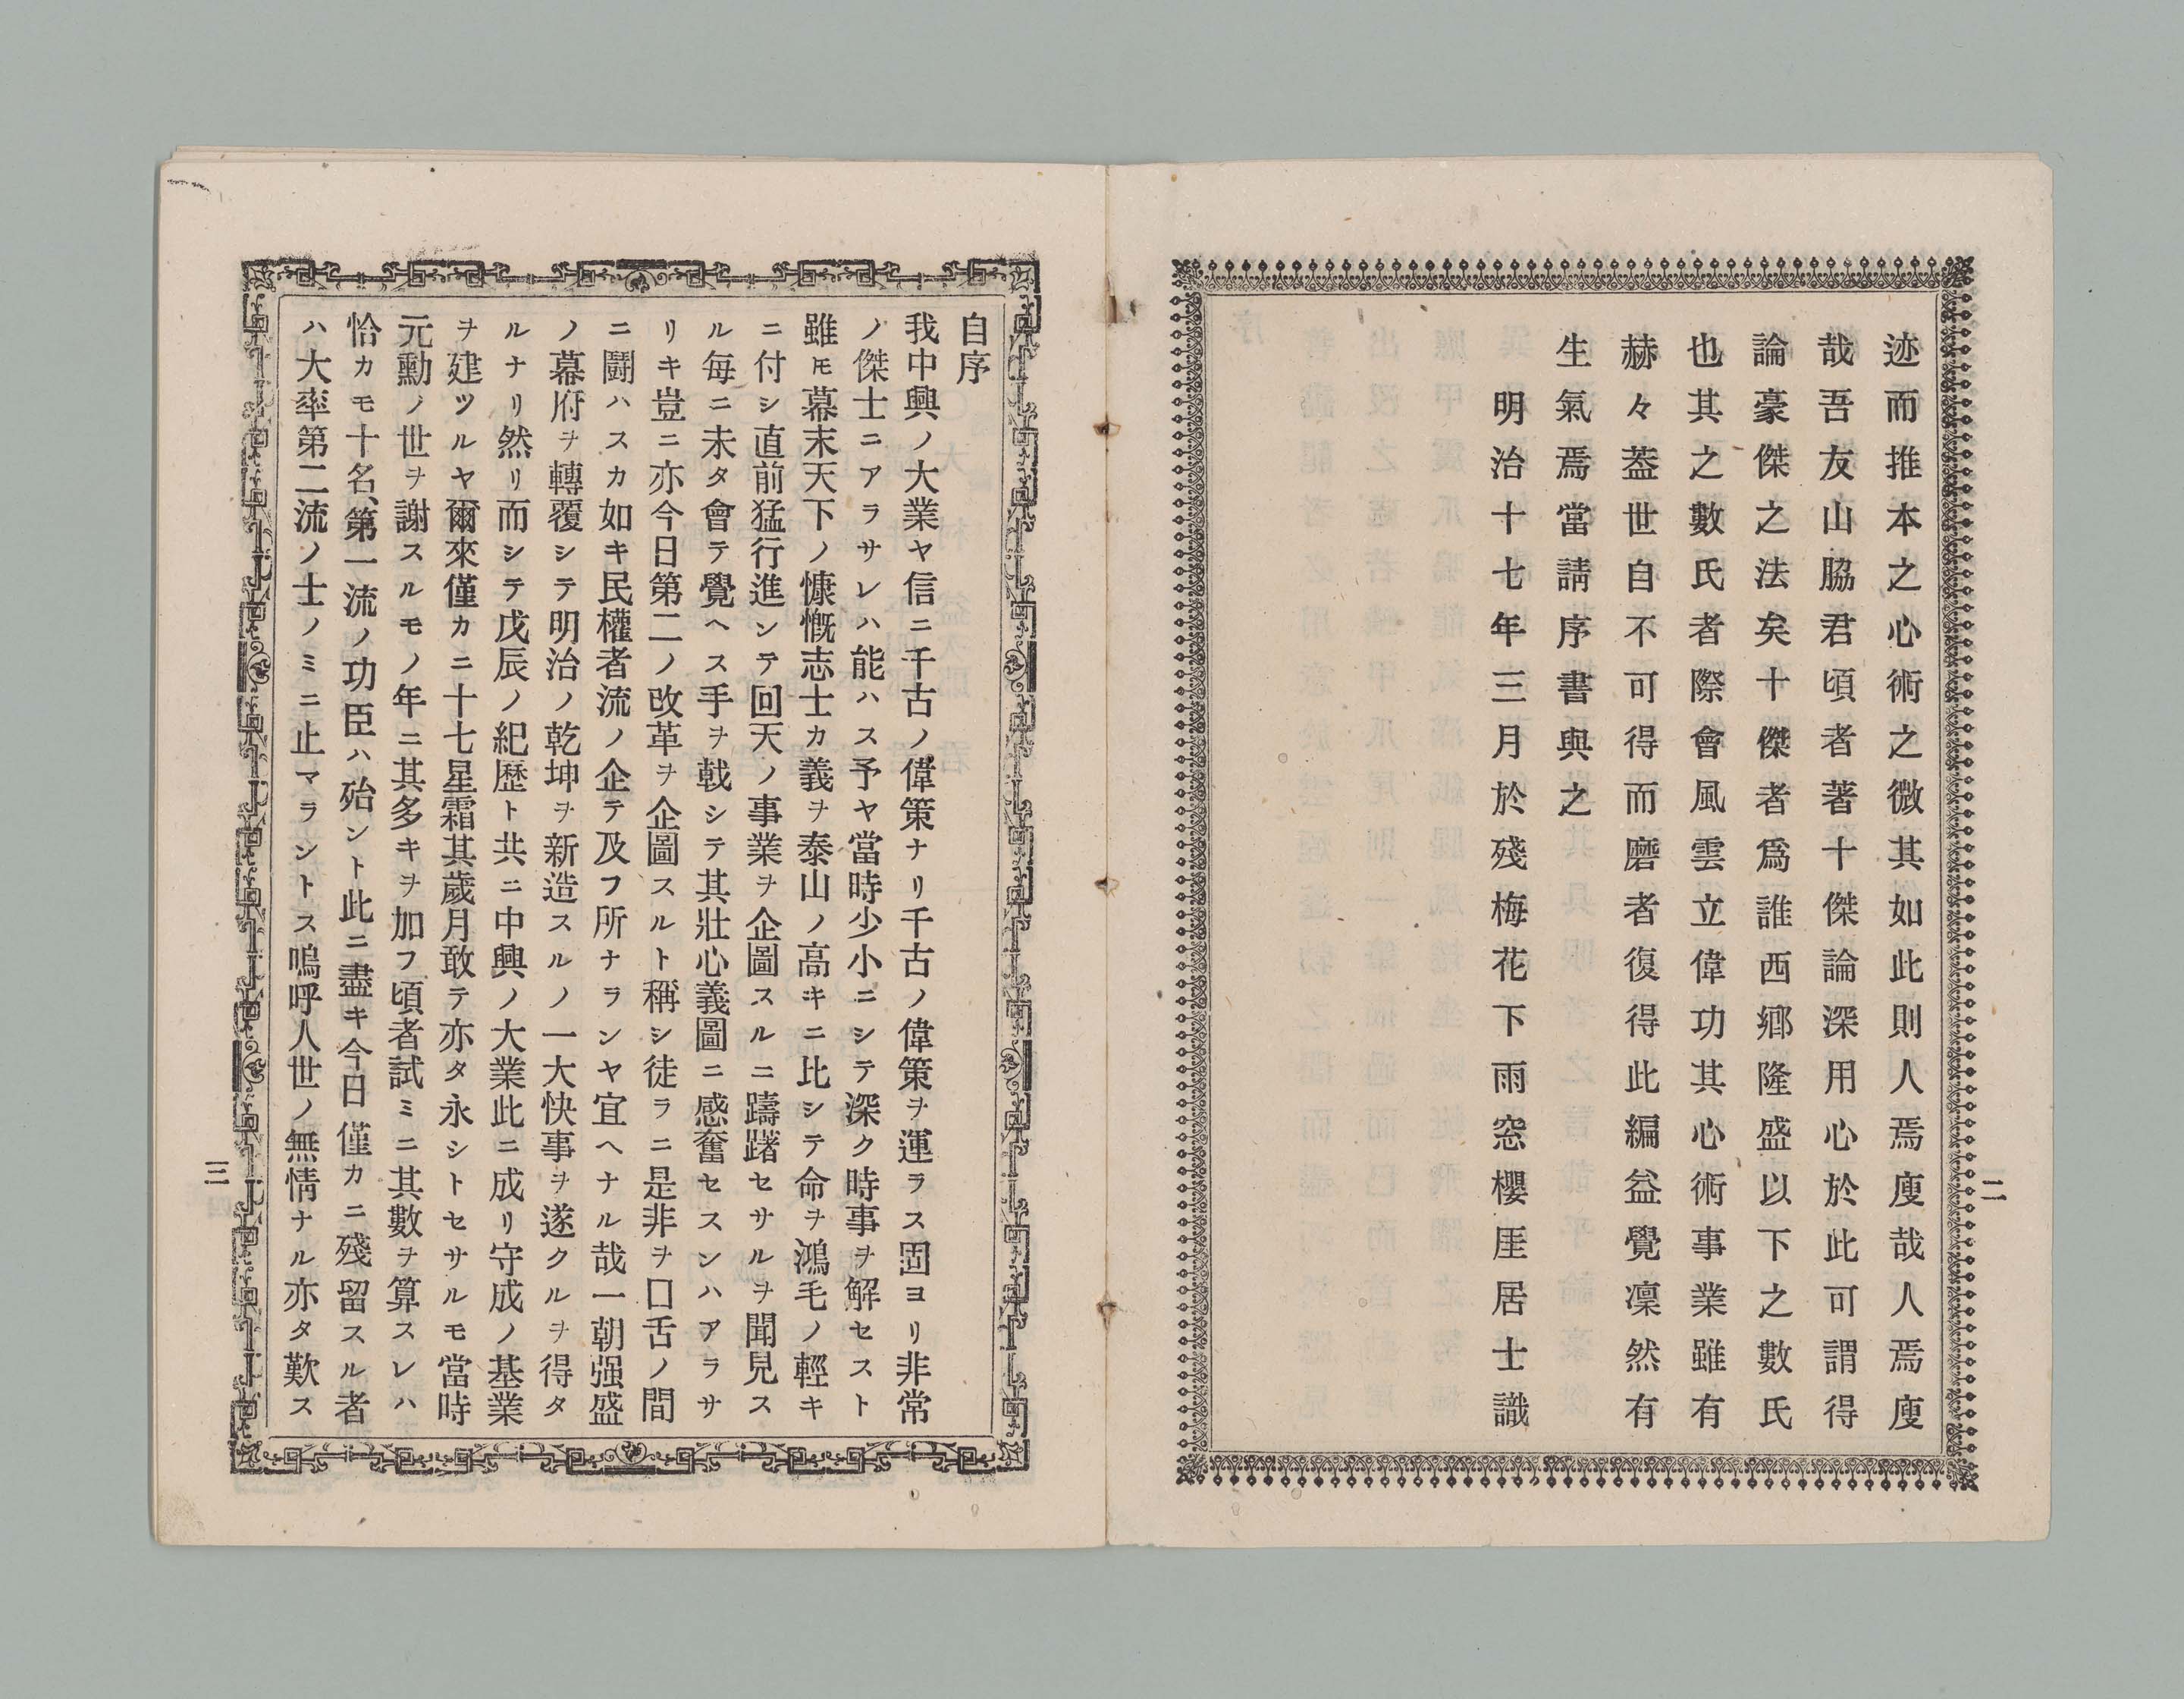 迹而推本之心術之微其如此則人焉廋哉人焉廋
哉吾友山脇君頃者著十傑論深用心於此可謂得
論豪傑之法矣十傑者爲誰西鄕隆盛以下之數氏
也其之數氏者際會風雲立偉功其心術事業雖有
赫々葢世自不可得而磨者復得此編益覺凜然有
生氣焉當請序書與之
明治十七年三月於殘梅花下雨窓櫻厓居士識
二
自序
我中興ノ大業ヤ信ニ千古ノ偉策ナリ千古ノ偉策ヲ運ラス固ヨリ非常
ノ傑士ニアラサレハ能ハス予ヤ當時少小ニシテ深ク時事ヲ解セスト
雖𪜈幕末天下ノ慷慨志士カ義ヲ泰山ノ高キニ比シテ命ヲ鴻毛ノ輕キ
ニ付シ直前猛行進ンテ回天ノ事業ヲ企圖スルニ躊躇セサルヲ聞見ス
ル每ニ未タ會テ覺ヘス手ヲ戟シテ其壯心義圖ニ感奮セスンハアラサ
リキ豈ニ亦今日第二ノ改革ヲ企圖スルト稱シ徒ラニ是非ヲ口舌ノ間
ニ鬪ハスカ如キ民權者流ノ企テ及フ所ナランヤ宜ヘナル哉一朝强盛
ノ幕府ヲ轉覆シテ明治ノ乾坤ヲ新造スルノ一大快事ヲ遂クルヲ得タ
ルナリ然リ而シテ戊辰ノ紀歷ト共ニ中興ノ大業此ニ成リ守成ノ基業
ヲ建ツルヤ爾來僅カニ十七星霜其歲月敢テ亦タ永シトセサルモ當時
元勳ノ世ヲ謝スルモノ年ニ其多キヲ加フ頃者試ミニ其數ヲ算スレハ
恰カモ十名、第一流ノ功臣ハ殆ント此ニ盡キ今日僅カニ殘留スル者
ハ大率第二流ノ士ノミニ止マラントス嗚呼人世ノ無情ナル亦タ歎ス
三